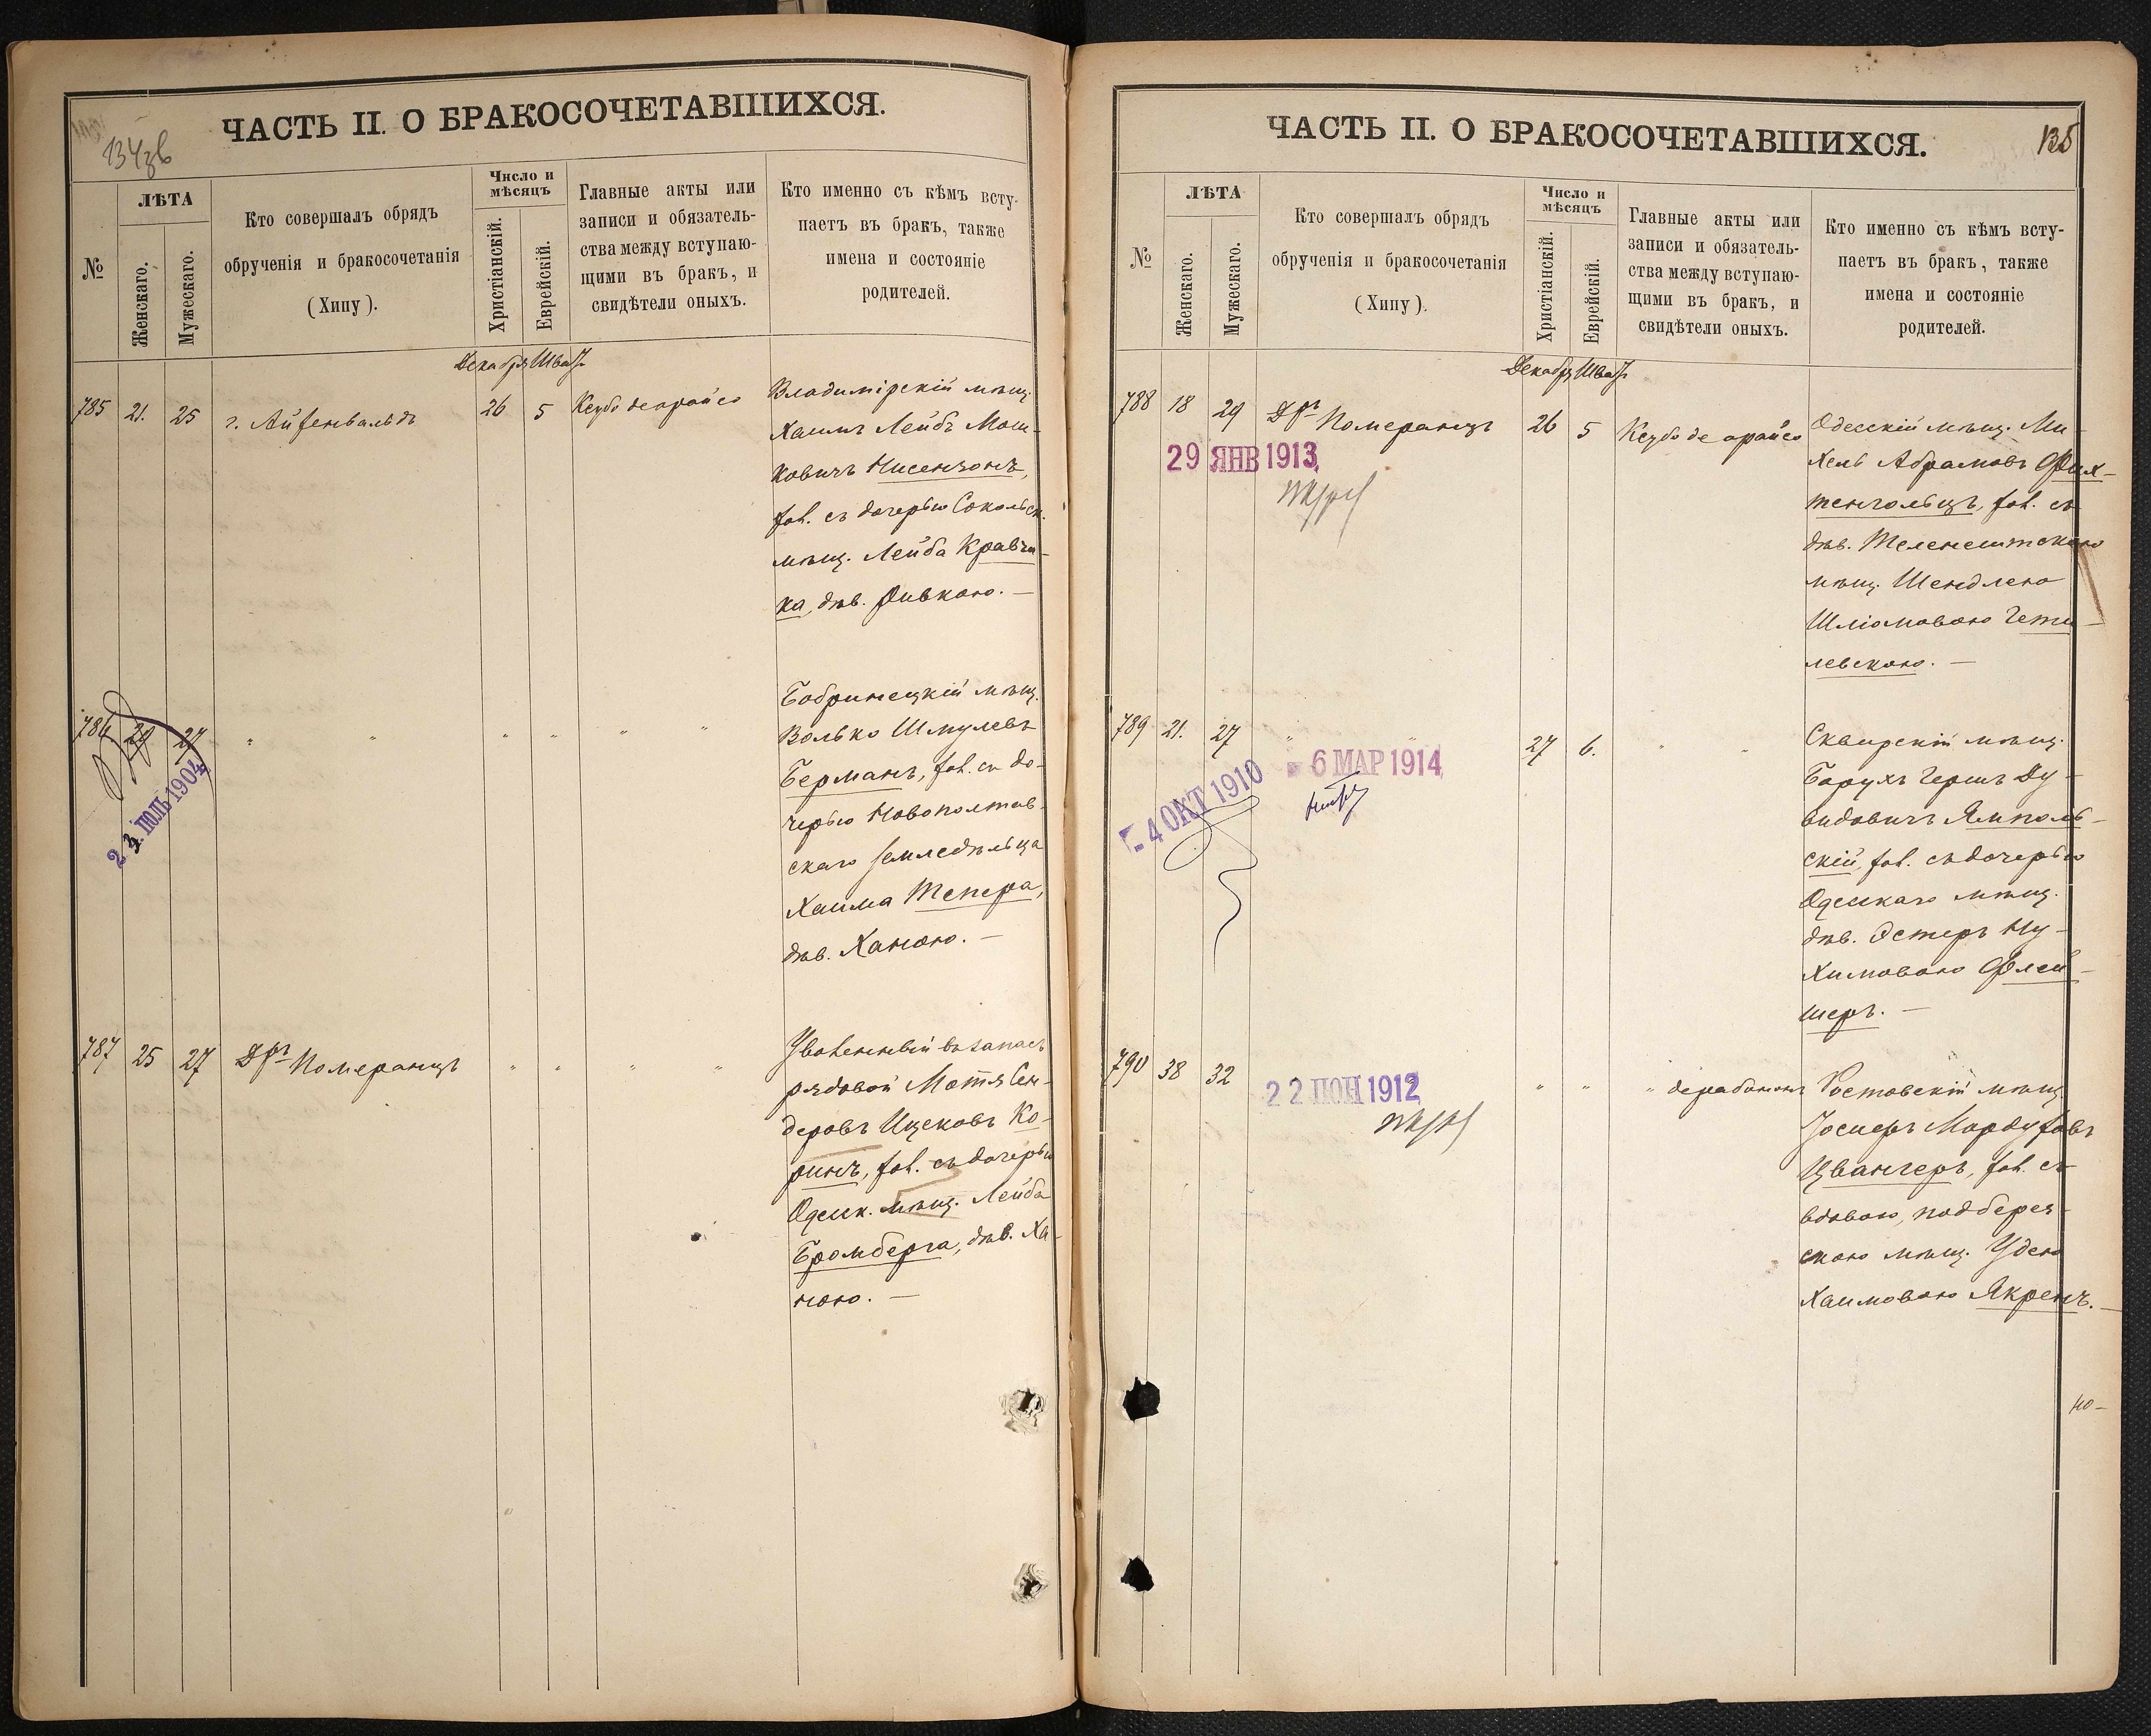 134 зв
ЧАСТЬ II. О БРАКОСОЧЕТАВШИХСЯ.
№
ЛѢТА
Женскаго.
Мужескаго.
Кто совершалъ обрядъ
обрученія и бракосочетанія
(Хипу).
Число и
мѣсяцъ
Христіанскій.
Еврейскій.
Главные акты или
записи и обязатель-
ства между вступаю-
щими въ бракъ, и
свидѣтели оныхъ.
Кто именно съ кѣмъ всту-
паетъ въ бракъ, также
имена и состояніе
родителей.
Декабрь Шватъ
785 21. 25 г. Айзенвальдъ 26 5 Ксубо деорайсо
Владимірскій мѣщ.
Хаимъ Лейбъ Мош-
ковичъ Нисензонъ,
хол. съ дочерью Сокольск.
мѣщ. Лейба Кравчи-
ка, дѣв. Ривкою. —
786 29 27 " " " " " "
23 ІЮЛЬ 1904
Бобринецкій мѣщ.
Волько Шмулевъ
Берманъ, хол. съ до-
черью Новополтав-
скаго земледѣльца
Хаима Тепера,
дѣв. Ханою. —
787 25 27 Дръ Померанцъ " " " "
Уволенный въ запасъ
рядовой Мотя Сен-
деровъ Ицековъ Ко-
ринъ, хол. съ дочерью
Одесск. мѣщ. Лейба
Бромберга, дѣв. Ха-
ною. —
ЧАСТЬ II. О БРАКОСОЧЕТАВШИХСЯ.
135
№
ЛѢТА
Женскаго.
Мужескаго.
Кто совершалъ обрядъ
обрученія и бракосочетанія
(Хипу).
Число и
мѣсяцъ
Христіанскій.
Еврейскій.
Главные акты или
записи и обязатель-
ства между вступаю-
щими въ бракъ, и
свидѣтели оныхъ.
Кто именно съ кѣмъ всту-
паетъ въ бракъ, также
имена и состояніе
родителей.
Декабрь Шватъ
788 18 29 Дръ Померанцъ 26 5 Ксубо де орайсо
29 ЯНВ 1913
Одесскій мѣщ. Ми-
хель Абрамовъ Фих-
тенгольцъ, хол. съ
дѣв. Теленештскою
мѣщ. Шендлею
Шліомовою Гети-
левскою. —
789 21. 27 " " 27 6. " "
- 4 ОКТ 1910
- 6 МАР 1914
Сквирскій мѣщ.
Борухъ Гершъ Ду-
видовичъ Ямполь-
скій, хол. съ дочерью
Одесскаго мѣщ.
дѣв. Эстеръ Ну-
химовою Флей-
шеръ. —
790 38 32 " " " дерабонон
22 ІЮН 1912
Ростовскій мѣщ.
Іосиеръ Мордуховъ
Цвангеръ, хол. съ
вдовою, подберез-
скою мѣщ. Удею
Хаимовою Якренъ. —
но-